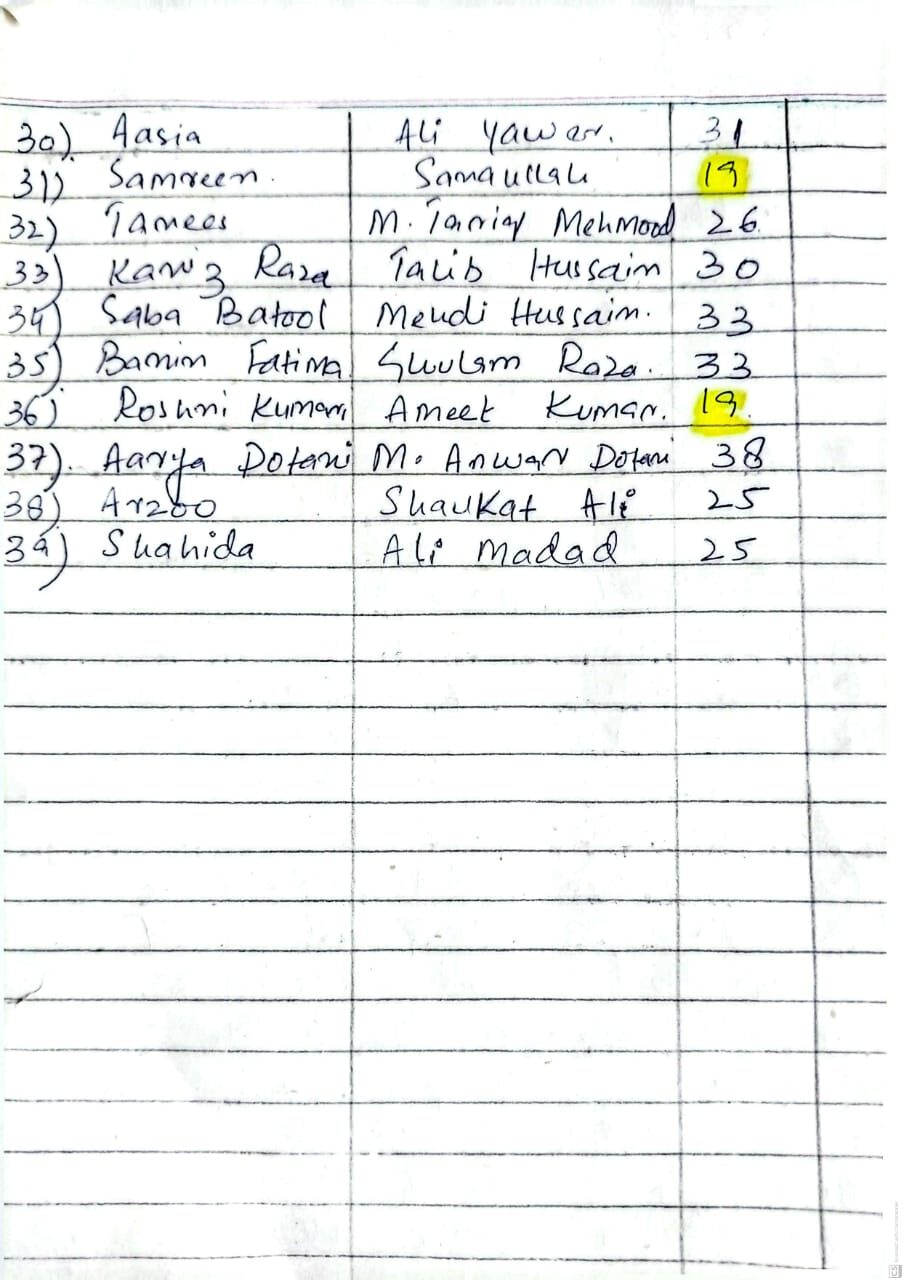 30) Aasia Ali Yawar. 31
31) Samreen. Sanaullah 19
32) Tamees M. Tariq Mehmood 26
33) Kaniz Raza Talib Hussain 30
34) Saba Batool Mehdi Hussain. 33
35) Banin Fatima Ghulam Raza. 33
36) Roshni Kumari Ameet Kumar. 19.
37). Aarya Dotani M. Anwar Dotani 38
38) Arzoo Shaukat Ali 25
39) Shahida Ali Madad 25
CS